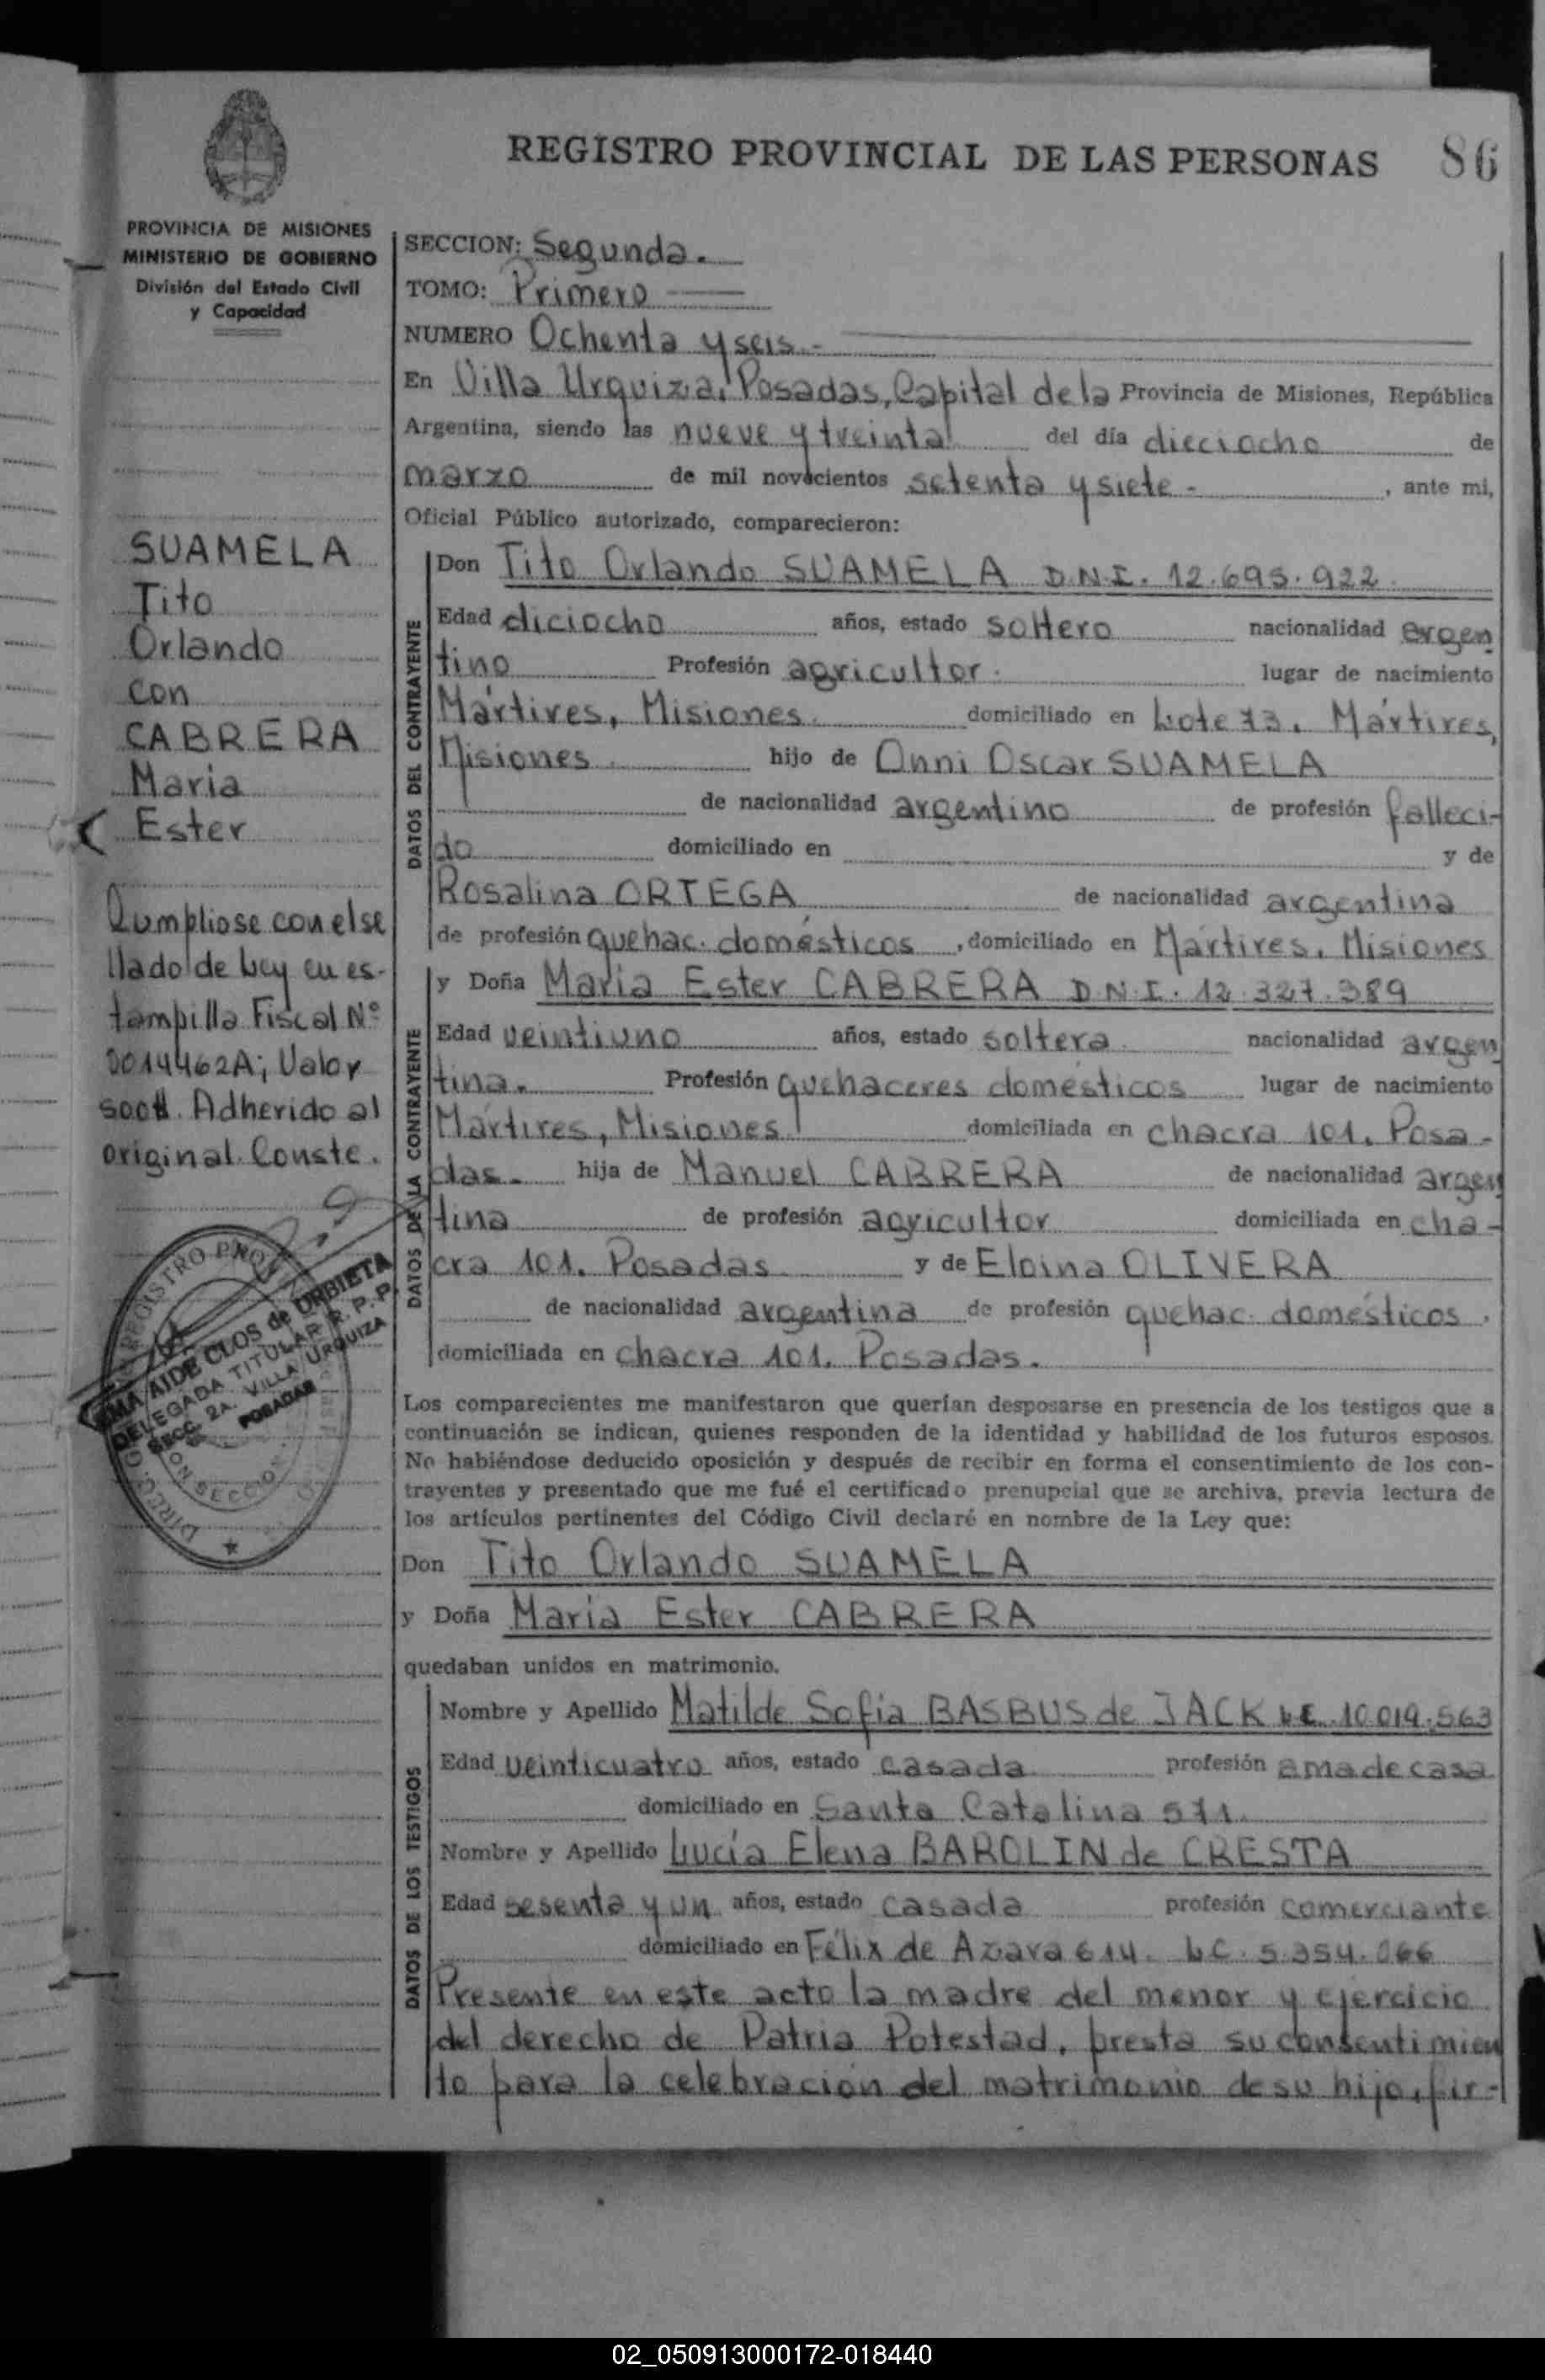 REGISTRO PROVINCIAL DE LAS PERSONAS 86
PROVINCIA DE MISIONES
MINISTERIO DE GOBIERNO
División del Estado Civil
y Capacidad
SUAMELA
Tito
Orlando
con
CABRERA
Maria
Ester
Cumpliose con el se
llado de Ley en es-
tampilla Fiscal Nº
0014462A; Valor
500$. Adherido al
original. Conste.
REGISTRO PROV
AIDE CLOS de URBIETA
DELEGADA TITULAR R. P. P.
SECC. 2A. VILLA URQUIZA
POSADAS
SECCION: Segunda.
TOMO: Primero
NUMERO Ochenta y seis.-
En Villa Urquiza, Posadas, Capital de la Provincia de Misiones, República
Argentina, siendo las nueve y treinta del día dieciocho de
marzo de mil novecientos setenta y siete - , ante mi,
Oficial Público autorizado, comparecieron:
DATOS DEL CONTRAYENTE
Don Tito Orlando SUAMELA D.N.I. 12.695.922
Edad diciocho años, estado soltero nacionalidad argen
tino Profesión agricultor. lugar de nacimiento
Mártires, Misiones domiciliado en Lote 73. Mártires,
Misiones. hijo de Onni Oscar SUAMELA
de nacionalidad argentino de profesión falleci-
do domiciliado en y de
Rosalina ORTEGA de nacionalidad argentina
de profesión quehac. domésticos , domiciliado en Mártires. Misiones
DATOS DE LA CONTRAYENTE
y Doña Maria Ester CABRERA D.N.I. 12.327.389
Edad veintiuno años, estado soltera nacionalidad argen
tina. Profesión quehaceres domésticos lugar de nacimiento
Mártires, Misiones domiciliada en chacra 101. Posa-
das. hija de Manuel CABRERA de nacionalidad argen
tina de profesión agricultor domiciliada en cha-
cra 101. Posadas y de Eloina OLIVERA
de nacionalidad argentina de profesión quehac. domésticos.
domiciliada en chacra 101. Posadas.
Los comparecientes me manifestaron que querían desposarse en presencia de los testigos que a
continuación se indican, quienes responden de la identidad y habilidad de los futuros esposos.
No habiéndose deducido oposición y después de recibir en forma el consentimiento de los con-
trayentes y presentado que me fué el certificado prenupcial que se archiva, previa lectura de
los artículos pertinentes del Código Civil declaré en nombre de la Ley que:
Don Tito Orlando SUAMELA
y Doña Maria Ester CABRERA
quedaban unidos en matrimonio.
DATOS DE LOS TESTIGOS
Nombre y Apellido Matilde Sofia BASBUS de JACK L.C. 10.019.563
Edad veinticuatro años, estado casada profesión ama de casa
domiciliado en Santa Catalina 571.
Nombre y Apellido Lucía Elena BAROLIN de CRESTA
Edad sesenta y un años, estado casada profesión comerciante
domiciliado en Félix de Azara 614. L.C. 5.354.066
Presente en este acto la madre del menor y ejercicio
del derecho de Patria Potestad, presta su consentimien
to para la celebración del matrimonio de su hijo, fir-
02_050913000172-018440